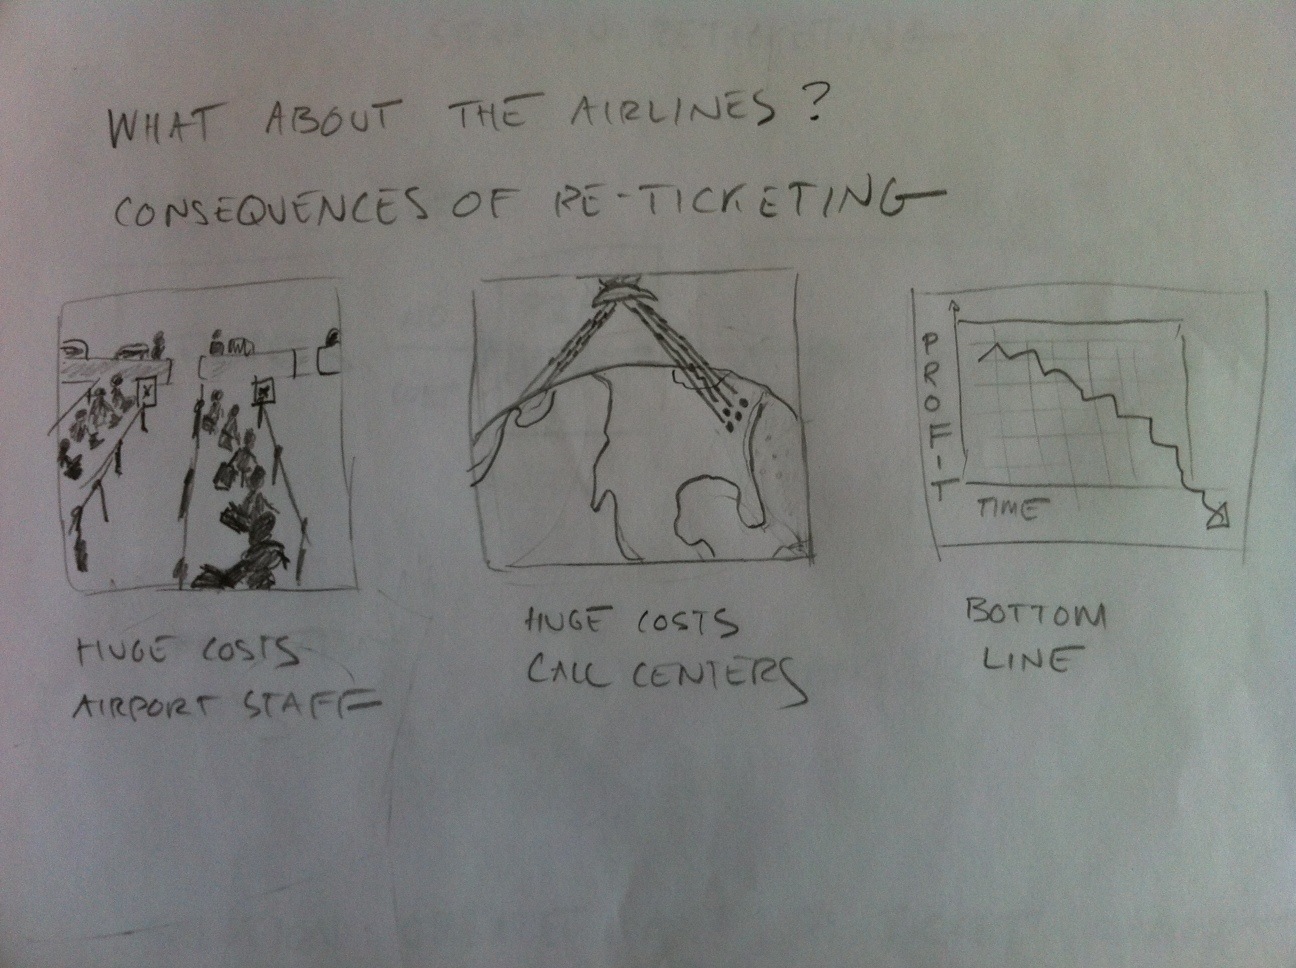 WHAT ABOUT THE AIRLINES?
CONSEQUENCES OF RE-TICKETING
PROFIT
TIME
HUGE COSTS
AIRPORT STAFF
HUGE COSTS
CALL CENTERS
BOTTOM
LINE